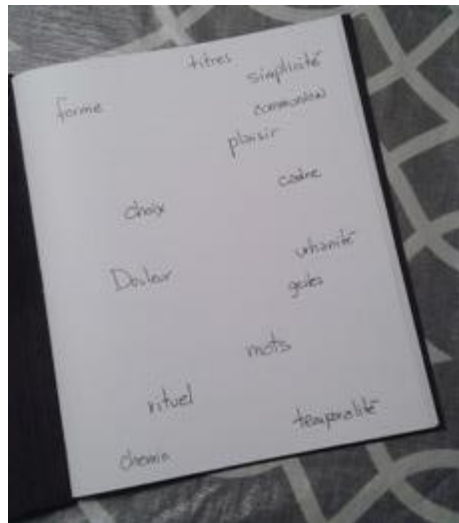 titres
simplicité
forme
communion
plaisir
cadre
choix
urbanité
Douleur
gestes
mots
rituel
temporalité
chemin